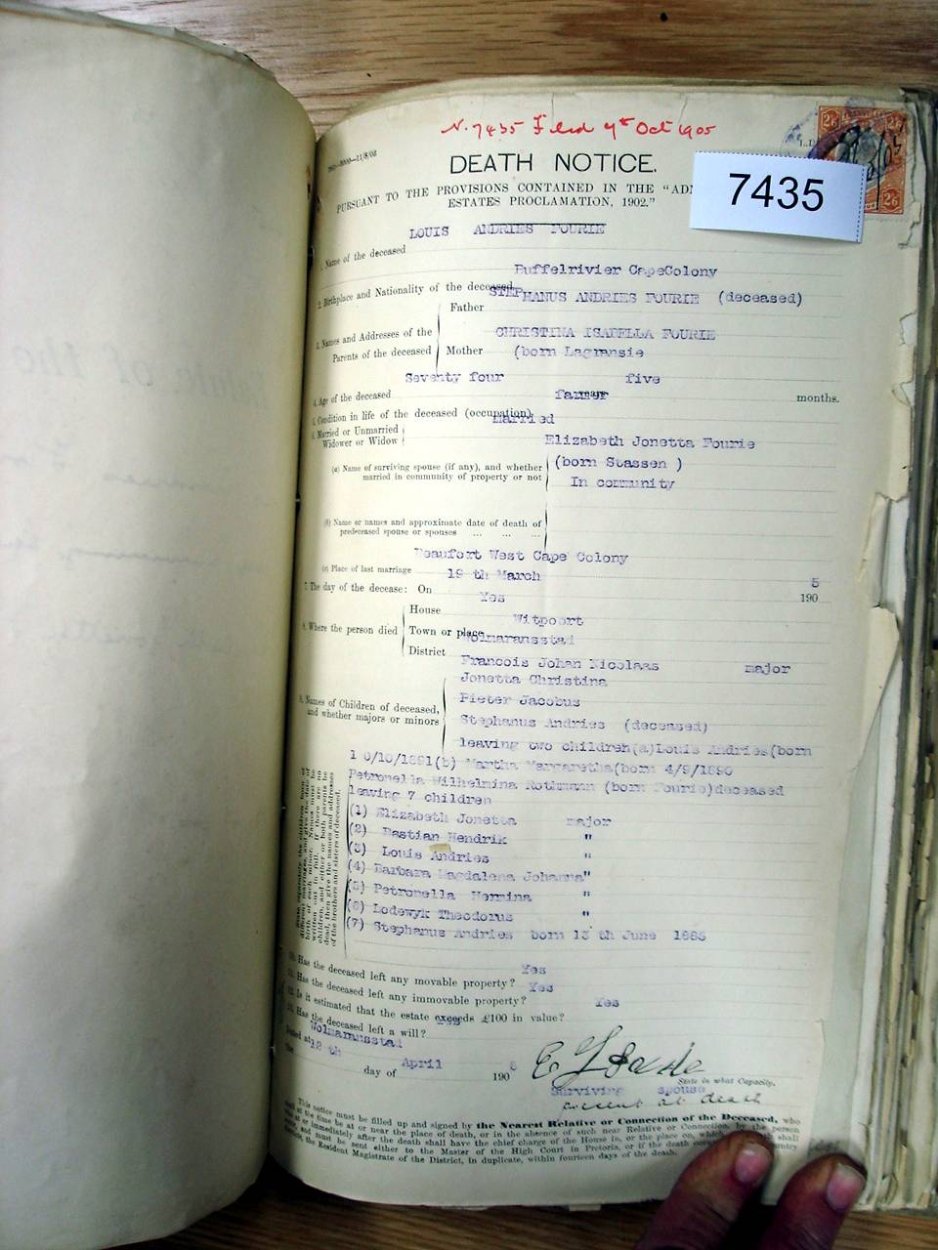 N. 7435 Filed 7th Oct 1905
2/6
DEATH NOTICE.
7435
PURSUANT TO THE PROVISIONS CONTAINED IN THE "AD
ESTATES PROCLAMATION, 1902."
2/6
LOUIS ANDRIES FOURIE
Name of the deceased
Buffelrivier CapeColony
2. Birthplace and Nationality of the deceased
STEPHANUS ANDRIES FOURIE (deceased)
Father
CHRISTINA ISABELLA FOURIE
Names and Addresses of the
Parents of the deceased
Mother (born Lagransie
Seventy four five
4. Age of the deceased months.
farmer
5. Condition in life of the deceased (occupation)
Married
6. Married or Unmarried
Widower or Widow
Elizabeth Jonetta Fourie
(born Stassen )
(a) Name of surviving spouse (if any), and whether
married in community of property or not
In community
(b) Name or names and approximate date of death of
predeceased spouse or spouses ... ... ...
Beaufort West Cape Colony
(c) Place of last marriage
19 th March 5
7. The day of the decease: On 190
Yes
House
Witpoort
8. Where the person died Town or place
Wolmaransstad
District
Francois Johan Nicolaas major
Jonetta Christina
Pieter Jacobus
9. Names of Children of deceased,
and whether majors or minors
Stephanus Andries (deceased)
leaving two children(a)Louis Andries(born
1 0/10/1891(b) Martha Margaretha(born 4/9/1896
Petronella Wilhelmina Rothmann (born Fourie)deceased
leaving 7 children
(1) Elizabeth Jonetta major
(2) Bastian Hendrik "
(3) Louis Andries "
(4) Barbara Magdalena Johanna"
(5) Petronella Hermina "
(6) Lodewyk Theodorus "
(7) Stephanus Andries born 13 th June 1885
Yes
10. Has the deceased left any movable property?
Yes
11. Has the deceased left any immovable property?
Yes
12. Is it estimated that the estate exceeds £100 in value?
Yes
13. Has the deceased left a will?
Wolmaransstad
Dated at
12 th
the
April
day of 190
State in what Capacity.
Surviving spouse
present at death
This notice must be filled up and signed by the Nearest Relative or Connection of the Deceased, who
shall at the time be at or near the place of death, or in the absence of such near Relative or Connection, by the person
who at or immediately after the death shall have the chief charge of the House in, or the place on, which the death shall
and must be sent either to the Master of the High Court in Pretoria, or if the death
the Resident Magistrate of the District, in duplicate, within fourteen days of the death.